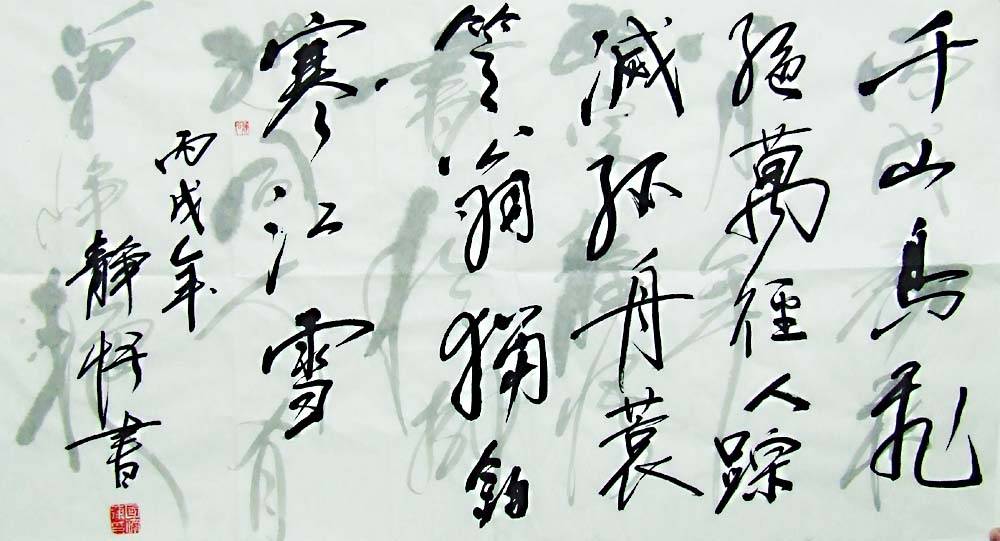 千山鳥飛
絕萬徑人踪
滅孤舟蓑
笠翁獨釣
寒江雪
丙戌年
靜悟書